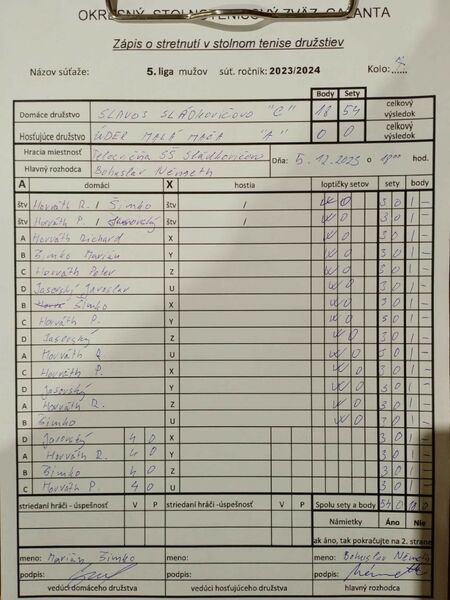 OKRESNÝ STOLNOTENISOVÝ ZVÄZ GALANTA
Zápis o stretnutí v stolnom tenise družstiev
Názov súťaže: 5. liga mužov súť. ročník: 2023/2024 Kolo:
Body Sety
Domáce družstvo SLAVOS SLÁDKOVIČOVO "C" 18 54 celkový výsledok
Hosťujúce družstvo ÚDER MALÁ MAČA "A" 0 0 celkový výsledok
Hracia miestnosť Telocvičňa SŠ Sládkovičovo Dňa: 5.12.2023 o 18:00 hod.
Hlavný rozhodca Bohuslav Németh
A domáci X hostia loptičky setov sety body
štv Horváth R. / Šimko štv / W O 3 0 1 -
štv Horváth P. / Jasovský štv / W O 3 0 1 -
A Horváth Richard X W O 3 0 1 -
B Šimko Marián Y W O 3 0 1 -
C Horváth Peter Z W O 3 0 1 -
D Jasovský Jaroslav U W O 3 0 1 -
B Šimko X W O 3 0 1 -
C Horváth P. Y W O 3 0 1 -
D Jasovský Z W O 3 0 1 -
A Horváth R. U W O 3 0 1 -
C Horváth P. X W O 3 0 1 -
D Jasovský Y W O 3 0 1 -
A Horváth R. Z W O 3 0 1 -
B Šimko U W O 3 0 1 -
D Jasovský 4 0 X 3 0 1 -
A Horváth R. 4 0 Y 3 0 1 -
B Šimko 4 0 Z 3 0 1 -
C Horváth P. 4 0 U 3 0 1 -
striedaní hráči - úspešnosť V P striedaní hráči - úspešnosť V P Spolu sety a body 54 0 18 0
Námietky Áno Nie
ak áno, tak pokračujte na 2. strane
meno: Marián Šimko meno: meno: Bohuslav Németh
podpis: podpis: podpis: Németh
vedúci domáceho družstva vedúci hosťujúceho družstva hlavný rozhodca